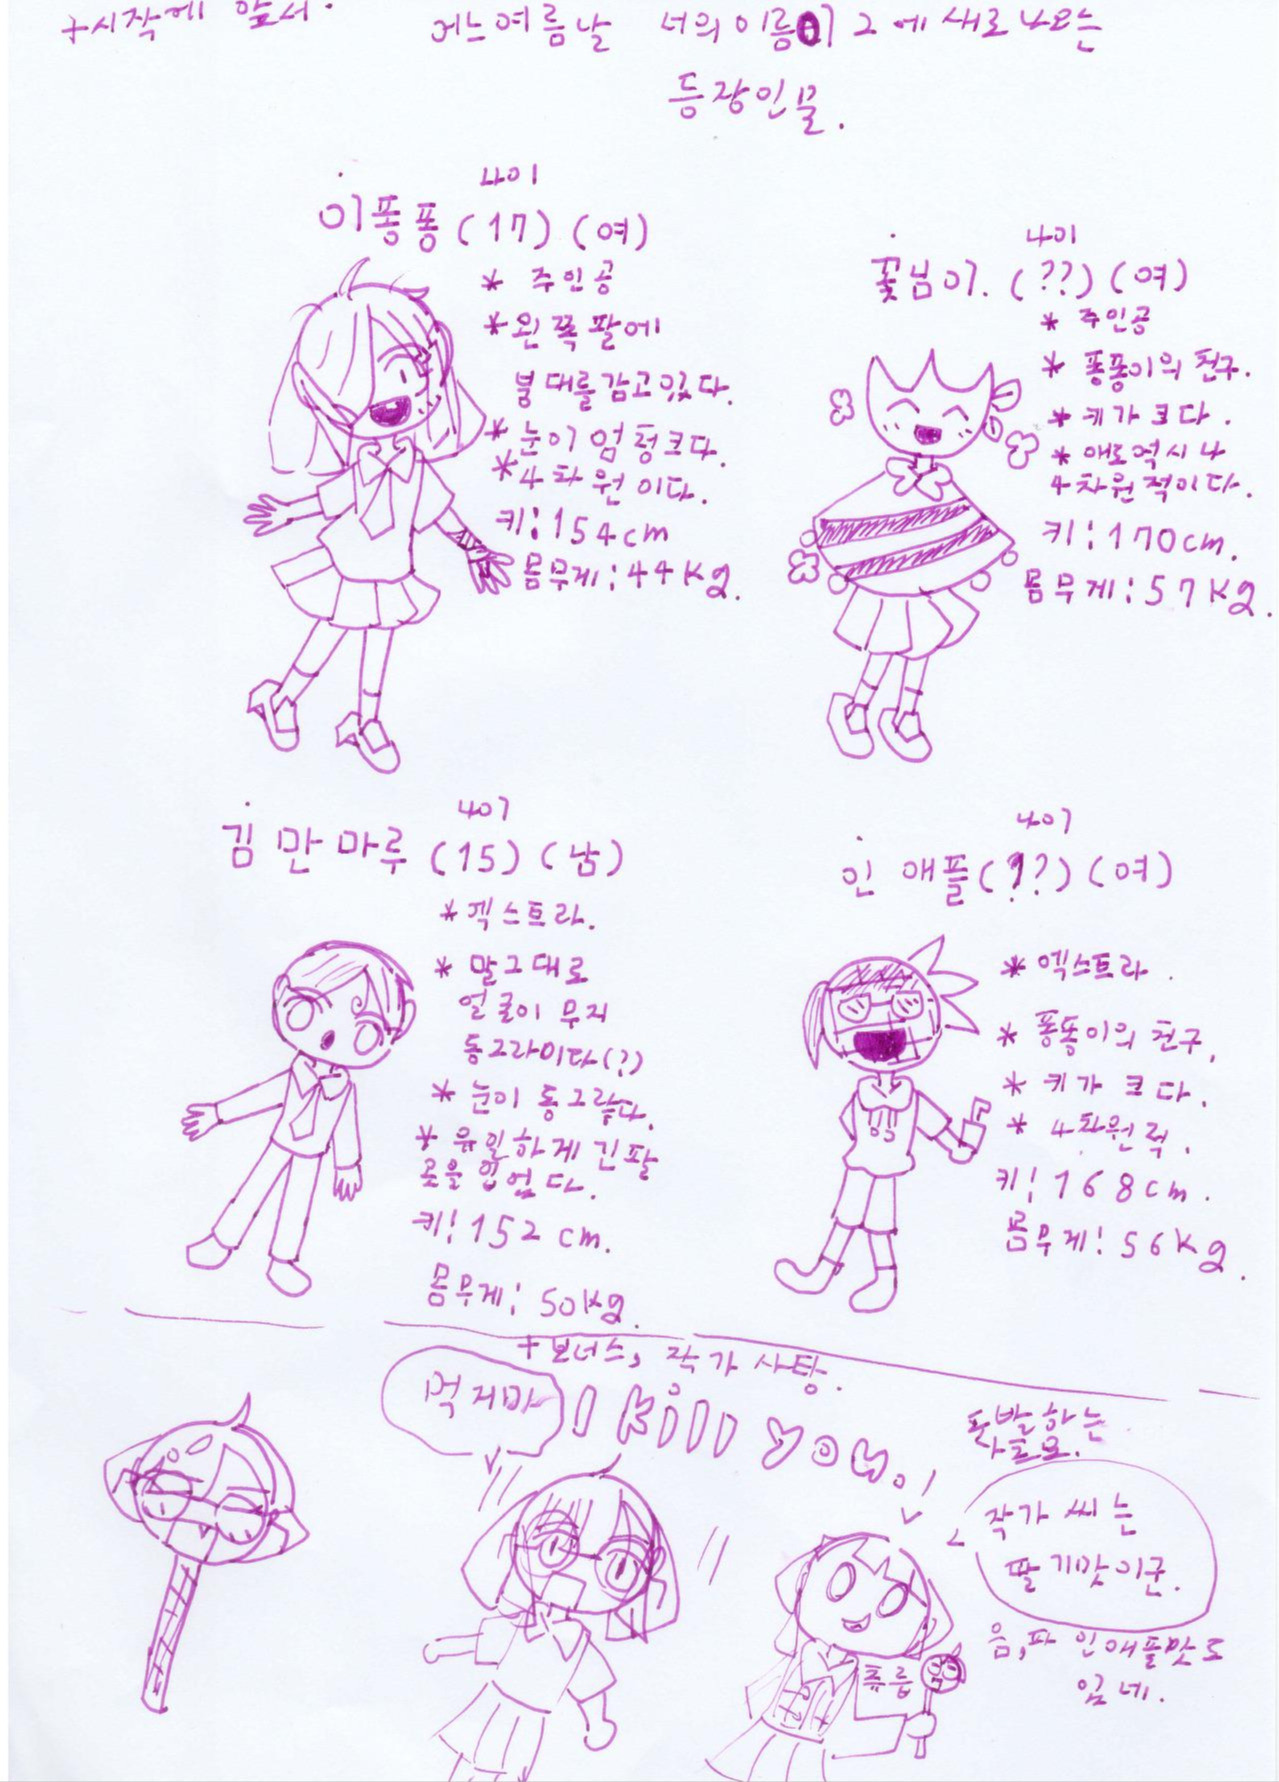 +시작에 앞서.
어느여름날 너의이름이 2에 새로나오는
등장인물.
나이
이퐁퐁(17)(여)
* 주인공
* 왼쪽팔에
붕대를감고있다.
* 눈이엄청크다.
* 4차원이다.
키:154cm
몸무게:44kg.
나이
꽃님이.(??)(여)
* 주인공
* 퐁퐁이의 친구.
* 키가 크다.
* 애로역시나
4차원적이다.
키:170cm.
몸무게:57kg.
나이
김만마루(15)(남)
* 엑스트라.
* 말그대로
얼굴이 무지
동그라미다(?)
* 눈이 동그랗다.
* 유일하게 긴팔
옷을 입었다.
키:152cm.
몸무게:50kg.
나이
인애플(??)(여)
* 엑스트라.
* 퐁퐁이의 친구.
* 키가 크다.
* 4차원적.
키:168cm.
몸무게:56kg.
+보너스, 작가사탕.
먹지마
I kill you.!
돌발하는
작가씨는
딸기맛이군.
음,파인애플맛도
있네.
츄릅